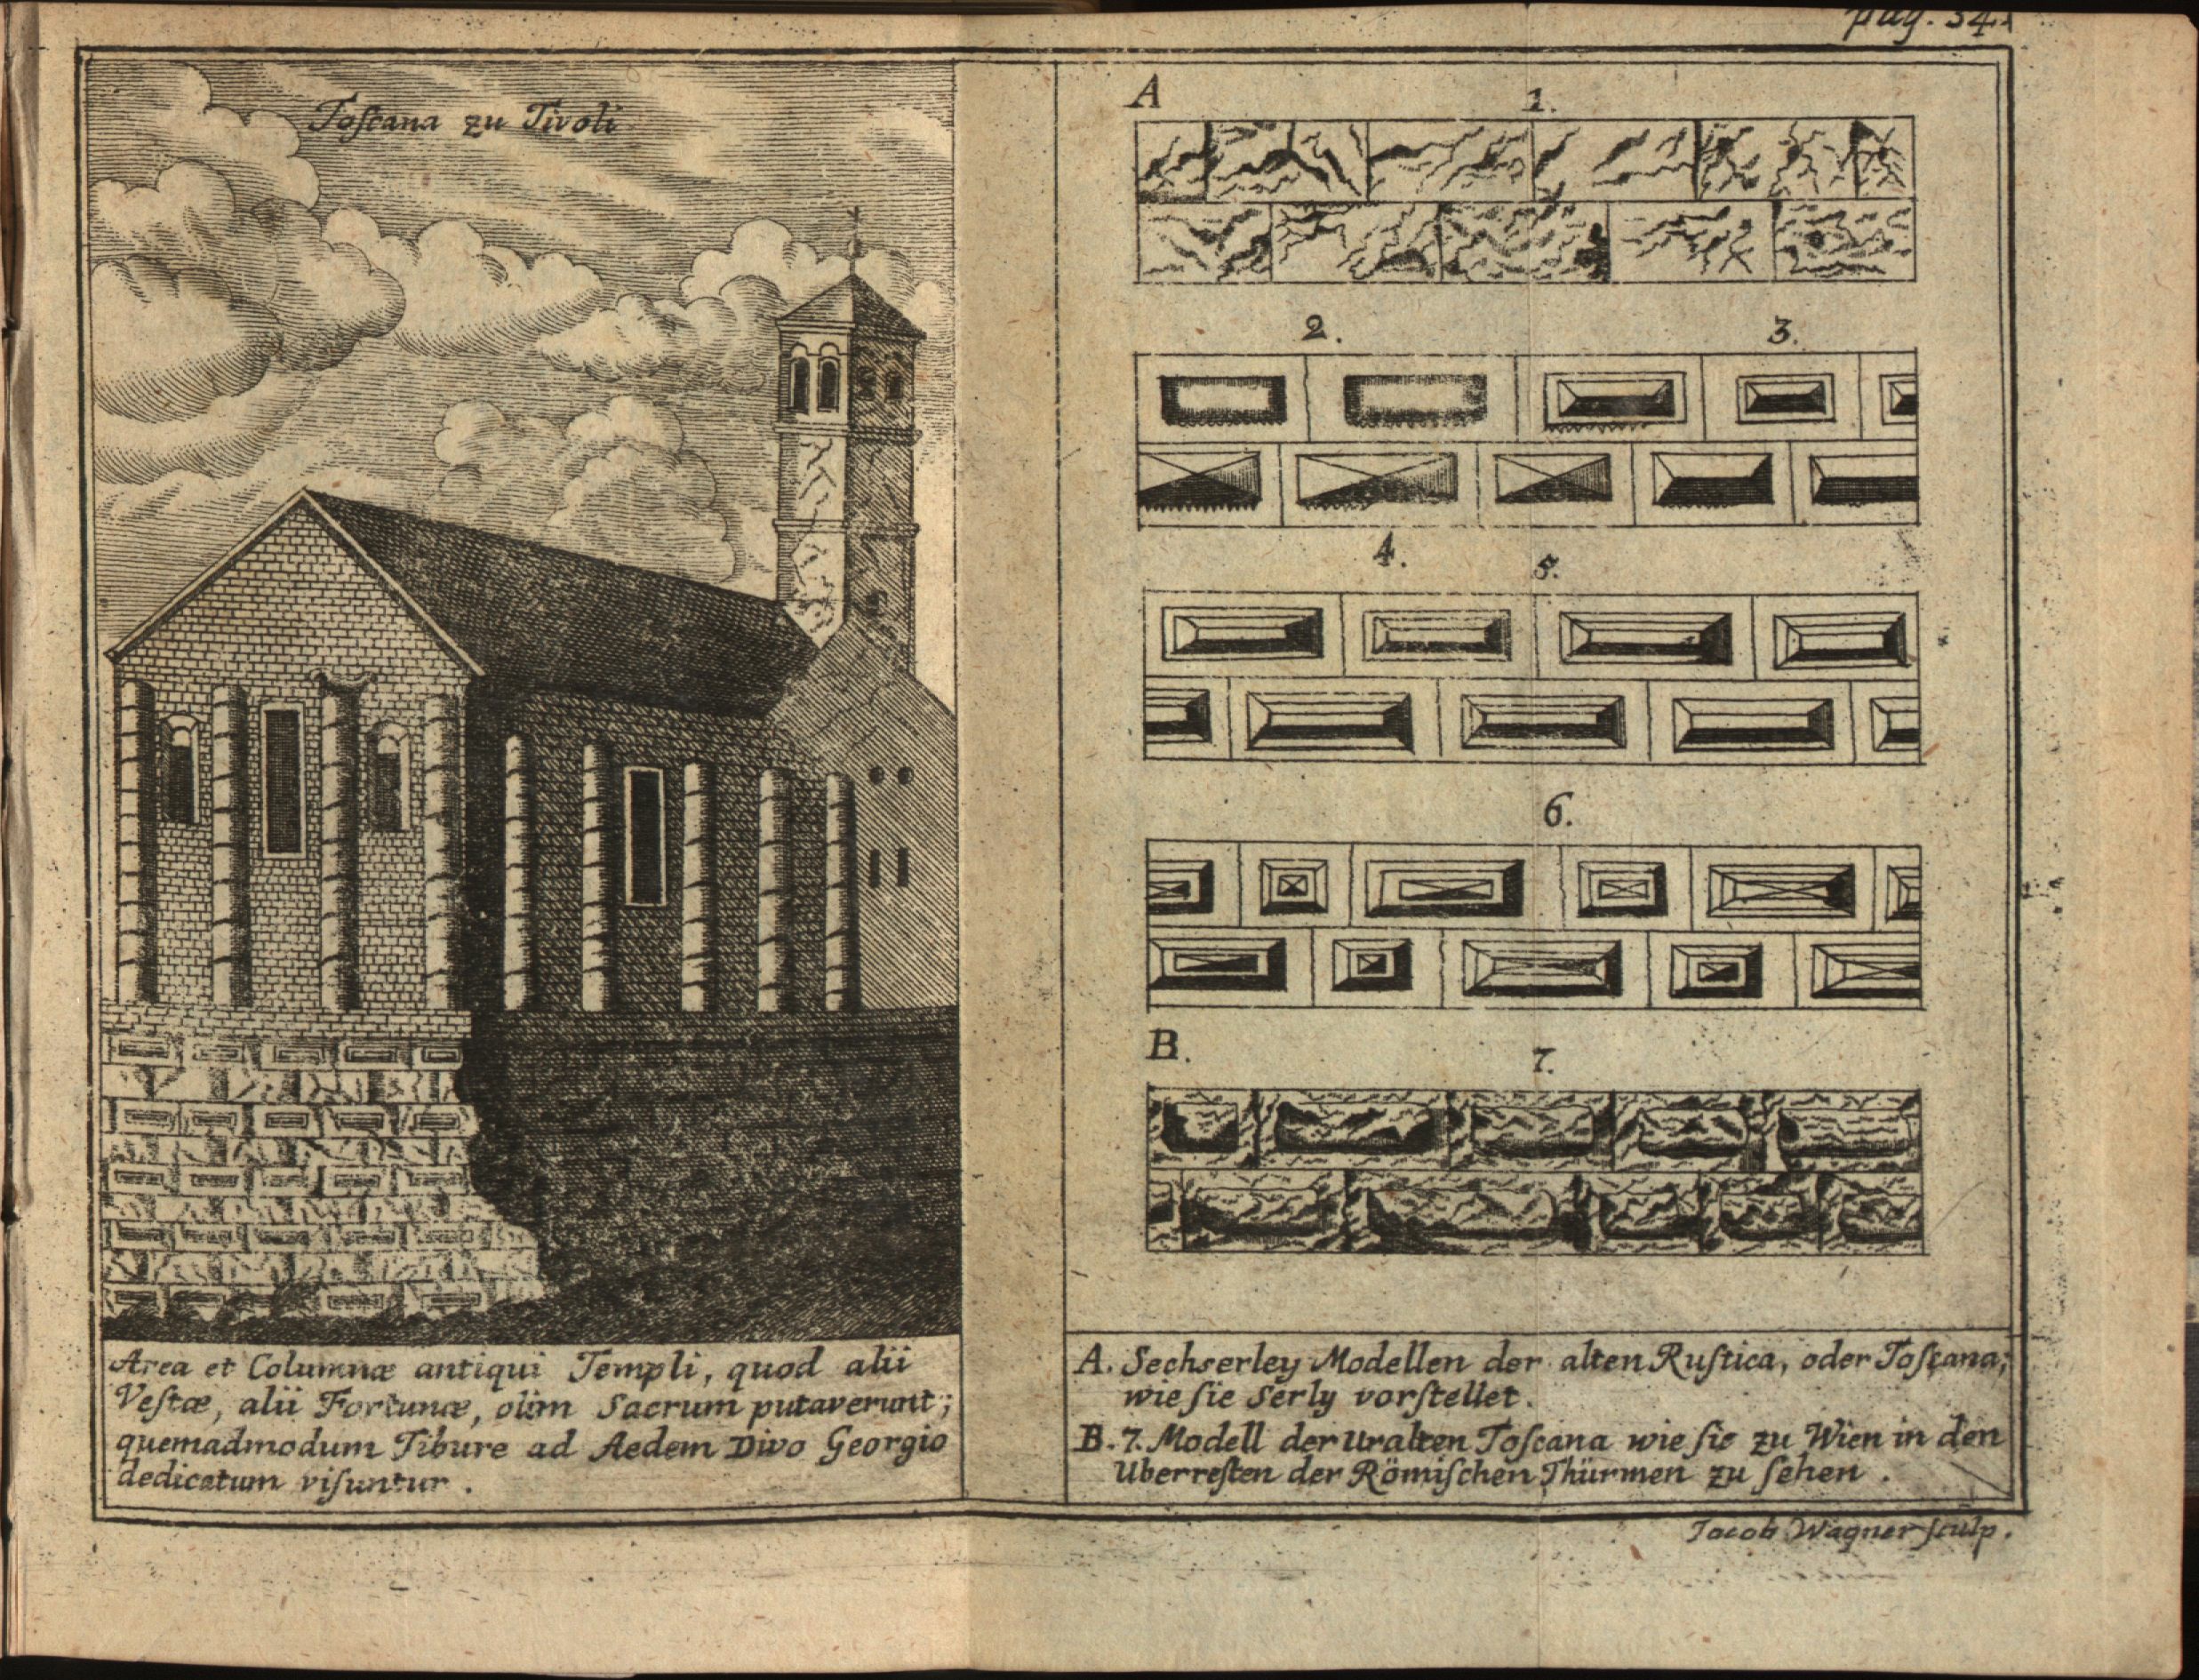 pag. 34.
Toſcana zu Tivoli
Area et Columnæ antiqui Templi, quod alii
Veſtæ, alii Fortunæ, olim Sacrum putaverunt;
quemadmodum Tibure ad Aedem Divo Georgio
dedicatum viſuntur.
A
1.
2.
3.
4.
5.
6.
B.
7.
A. Sechserley Modellen der alten Ruſtica, oder Toſcana,
wie ſie Serly vorſtellet.
B. 7. Modell der Uralten Toſcana wie ſie zu Wien in den
Uberreſten der Römiſchen Thürmen zu ſehen.
Jacob Wagner ſculp.